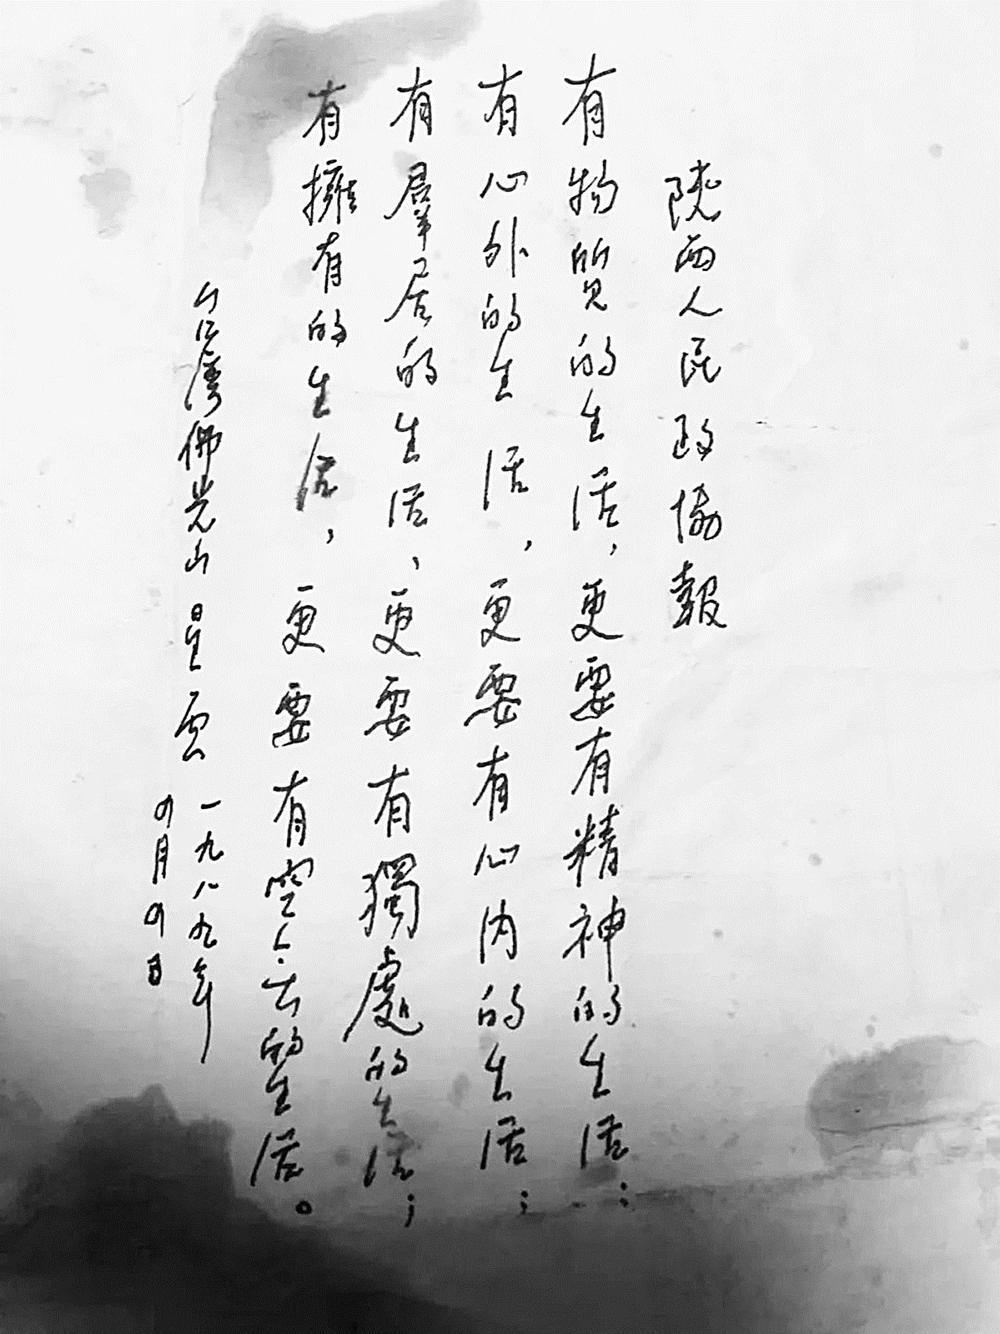 陝西人民政協報
有物質的生活，更要有精神的生活；
有心外的生活，更要有心內的生活；
有羣居的生活，更要有獨處的生活；
有擁有的生活，更要有空無的生活。
台灣佛光山星雲 一九八九年
四月四日